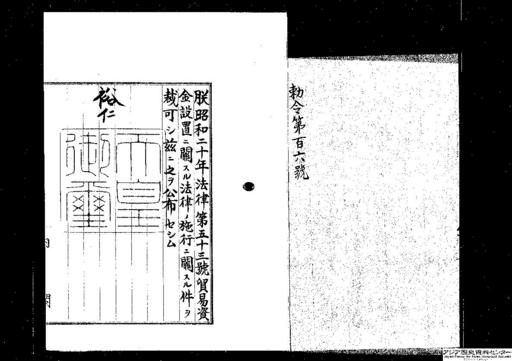 勅令第百六號
朕昭和二十年法律第五十三號貿易資
金設置ニ關スル法律ノ施行ニ關スル件ヲ
裁可シ茲ニ之ヲ公布セシム
裕仁
天皇
御璽
内
閣
アジア歴史資料センター